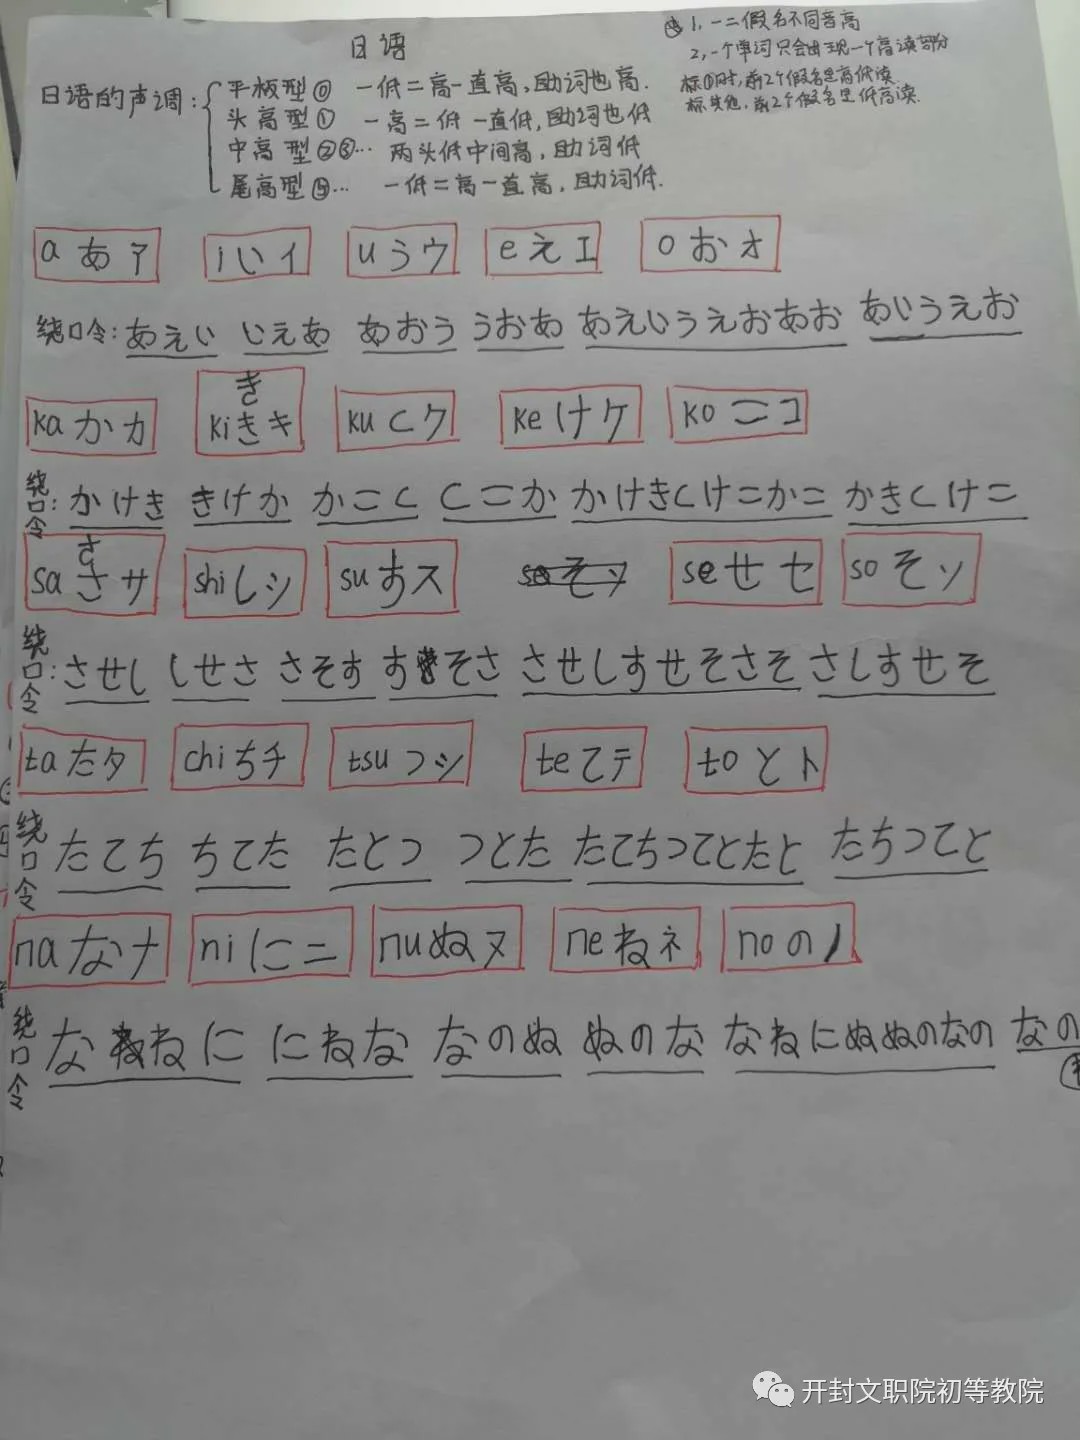 日语
☆1、一二假名不同音高
2、一个单词只会出现一个高读部分
标①时,前2个假名是高低读
标其他,前2个假名是低高读.
日语的声调:
平板型⓪ 一低二高一直高,助词也高.
头高型① 一高二低一直低,助词也低
中高型②③… 两头低中间高,助词低
尾高型 … 一低二高一直高,助词低.
aあア iいイ uうウ eえエ oおオ
绕口令:あえい いえあ あおう うおあ あえいうえおあお あいうえお
き
kaかカ kiきキ kuくク keけケ koこコ
绕口令:かけき きけか かこく くこか かけきくけこかこ かきくけこ
さ
saさサ shiしシ suすス seせセ soそソ
绕口令:させし しせさ さそす すそさ させしすせそさそ さしすせそ
taたタ chiちチ tsuつシ teてテ toとト
绕口令 たてち ちてた たとつ つとた たてちつてとたと たちつてと
naなナ niにニ nuぬヌ neねネ noのノ
绕口令 なねに にねな なのぬ ぬのな なねにぬぬのなの なの
开封文职院初等教院